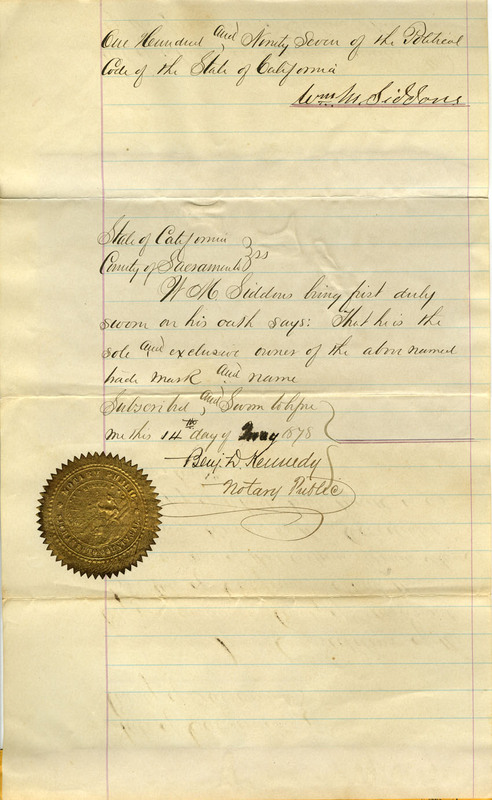 One Hundred and Ninety Seven of the Political
Code of the State of California
Wm. M. Siddons
State of California
County of Sacramento } ss
W M Siddons being first duly
sworn on his oath says: That he is the
sole and exclusive owner of the above named
trade mark and name
Subscribed and Sworn to before
me this 14th day of May 1878
Benj. D. Kennedy
Notary Public